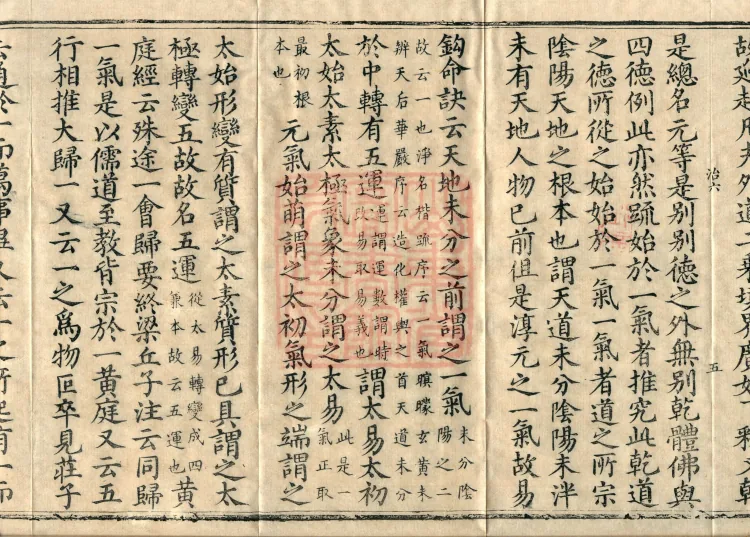 治六
五
是總名元等是別別德之外無別乾體佛與
四德例此亦然䟽始於一氣者推究此乾道
之德所從之始始於一氣一氣者道之所宗
陰陽天地之根本也謂天道未分陰陽未泮
未有天地人物已前但是淳元之一氣故易
鈎命訣云天地未分之前謂之一氣未分陰陽之二
故云一也淨名楷䟽序云一氣暝曚玄黃未
辨天后華嚴序云造化權輿之首天道未分
於中轉有五運運謂運數謂時改易取易義也謂太易太初
太始太素太極氣象未分謂之太易此是一氣正取
最初根本也元氣始萌謂之太初氣形之端謂之
太始形變有質謂之太素質形已具謂之太
極轉變五故故名五運從太易轉變成四兼本故云五運也黃
庭經云殊途一會歸要終梁丘子注云同歸
一氣是以儒道至教皆宗於一黃庭又云五
行相推大歸一又云一之爲物叵卒見莊子
云通於一而萬事畢又云一之所起有一而